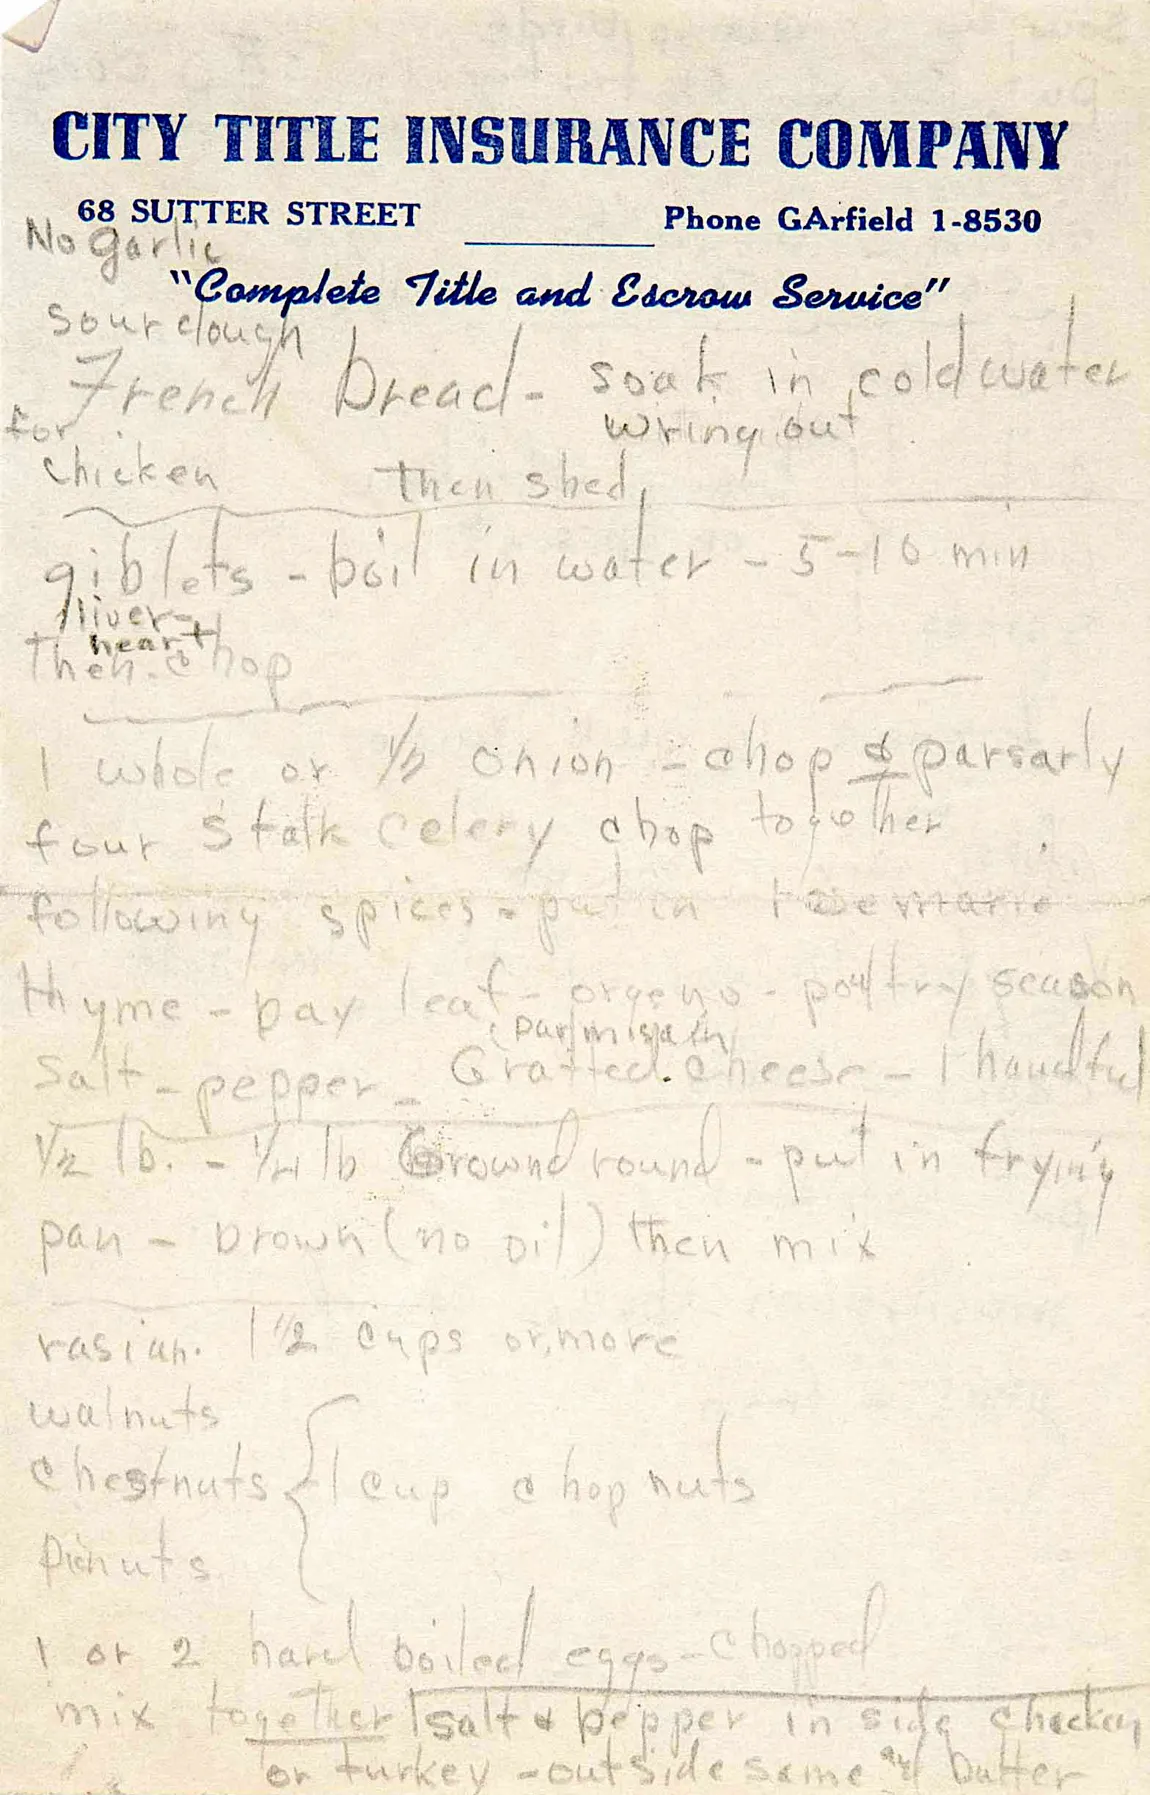 CITY TITLE INSURANCE COMPANY
68 SUTTER STREET Phone GArfield 1-8530
No garlic
"Complete Title and Escrow Service"
sour dough
French bread - soak in cold water
for wring out
chicken then shed,
giblets - boil in water - 5-10 min
liver-
heart
then chop
1 whole or 1/2 onion - chop & parsarly
four stalk celery chop together
following spices - put in rosemarie
thyme - bay leaf - orgeno - poultry season
(parmisian)
salt - pepper - Gratted cheese - 1 handful
1/2 lb. - 1/4 lb Grownd round - put in frying
pan - brown (no oil) then mix
rasian. 1 1/2 cups or more
walnuts
chestnuts { 1 cup chop nuts
pinuts
1 or 2 hard boiled eggs - chopped
mix together salt & pepper in side chicken
or turkey - outside same butter